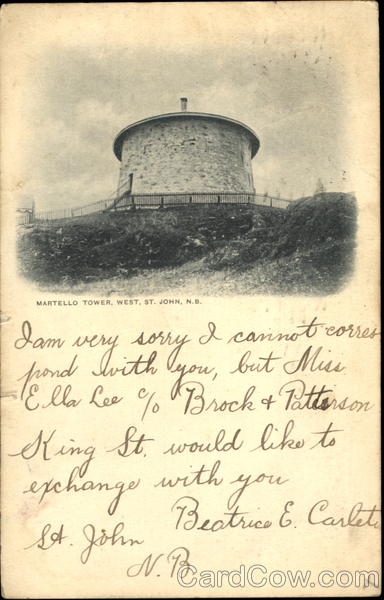 MARTELLO TOWER, WEST, ST. JOHN, N.B.
I am very sorry I cannot corres
pond with you, but Miss
Ella Lee c/o Brock & Patterson
King St. would like to
exchange with you
Beatrice E.
St. John
N.B.
CardCow.com